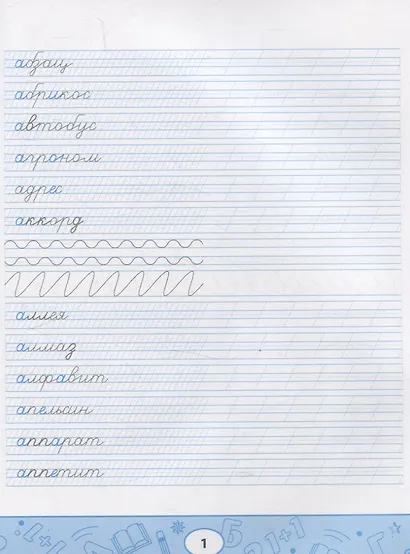 абзац
абрикос
автобус
агроном
адрес
аккорд
аллея
алмаз
алфавит
апельсин
аппарат
аппетит
1
Б 21+1 Г